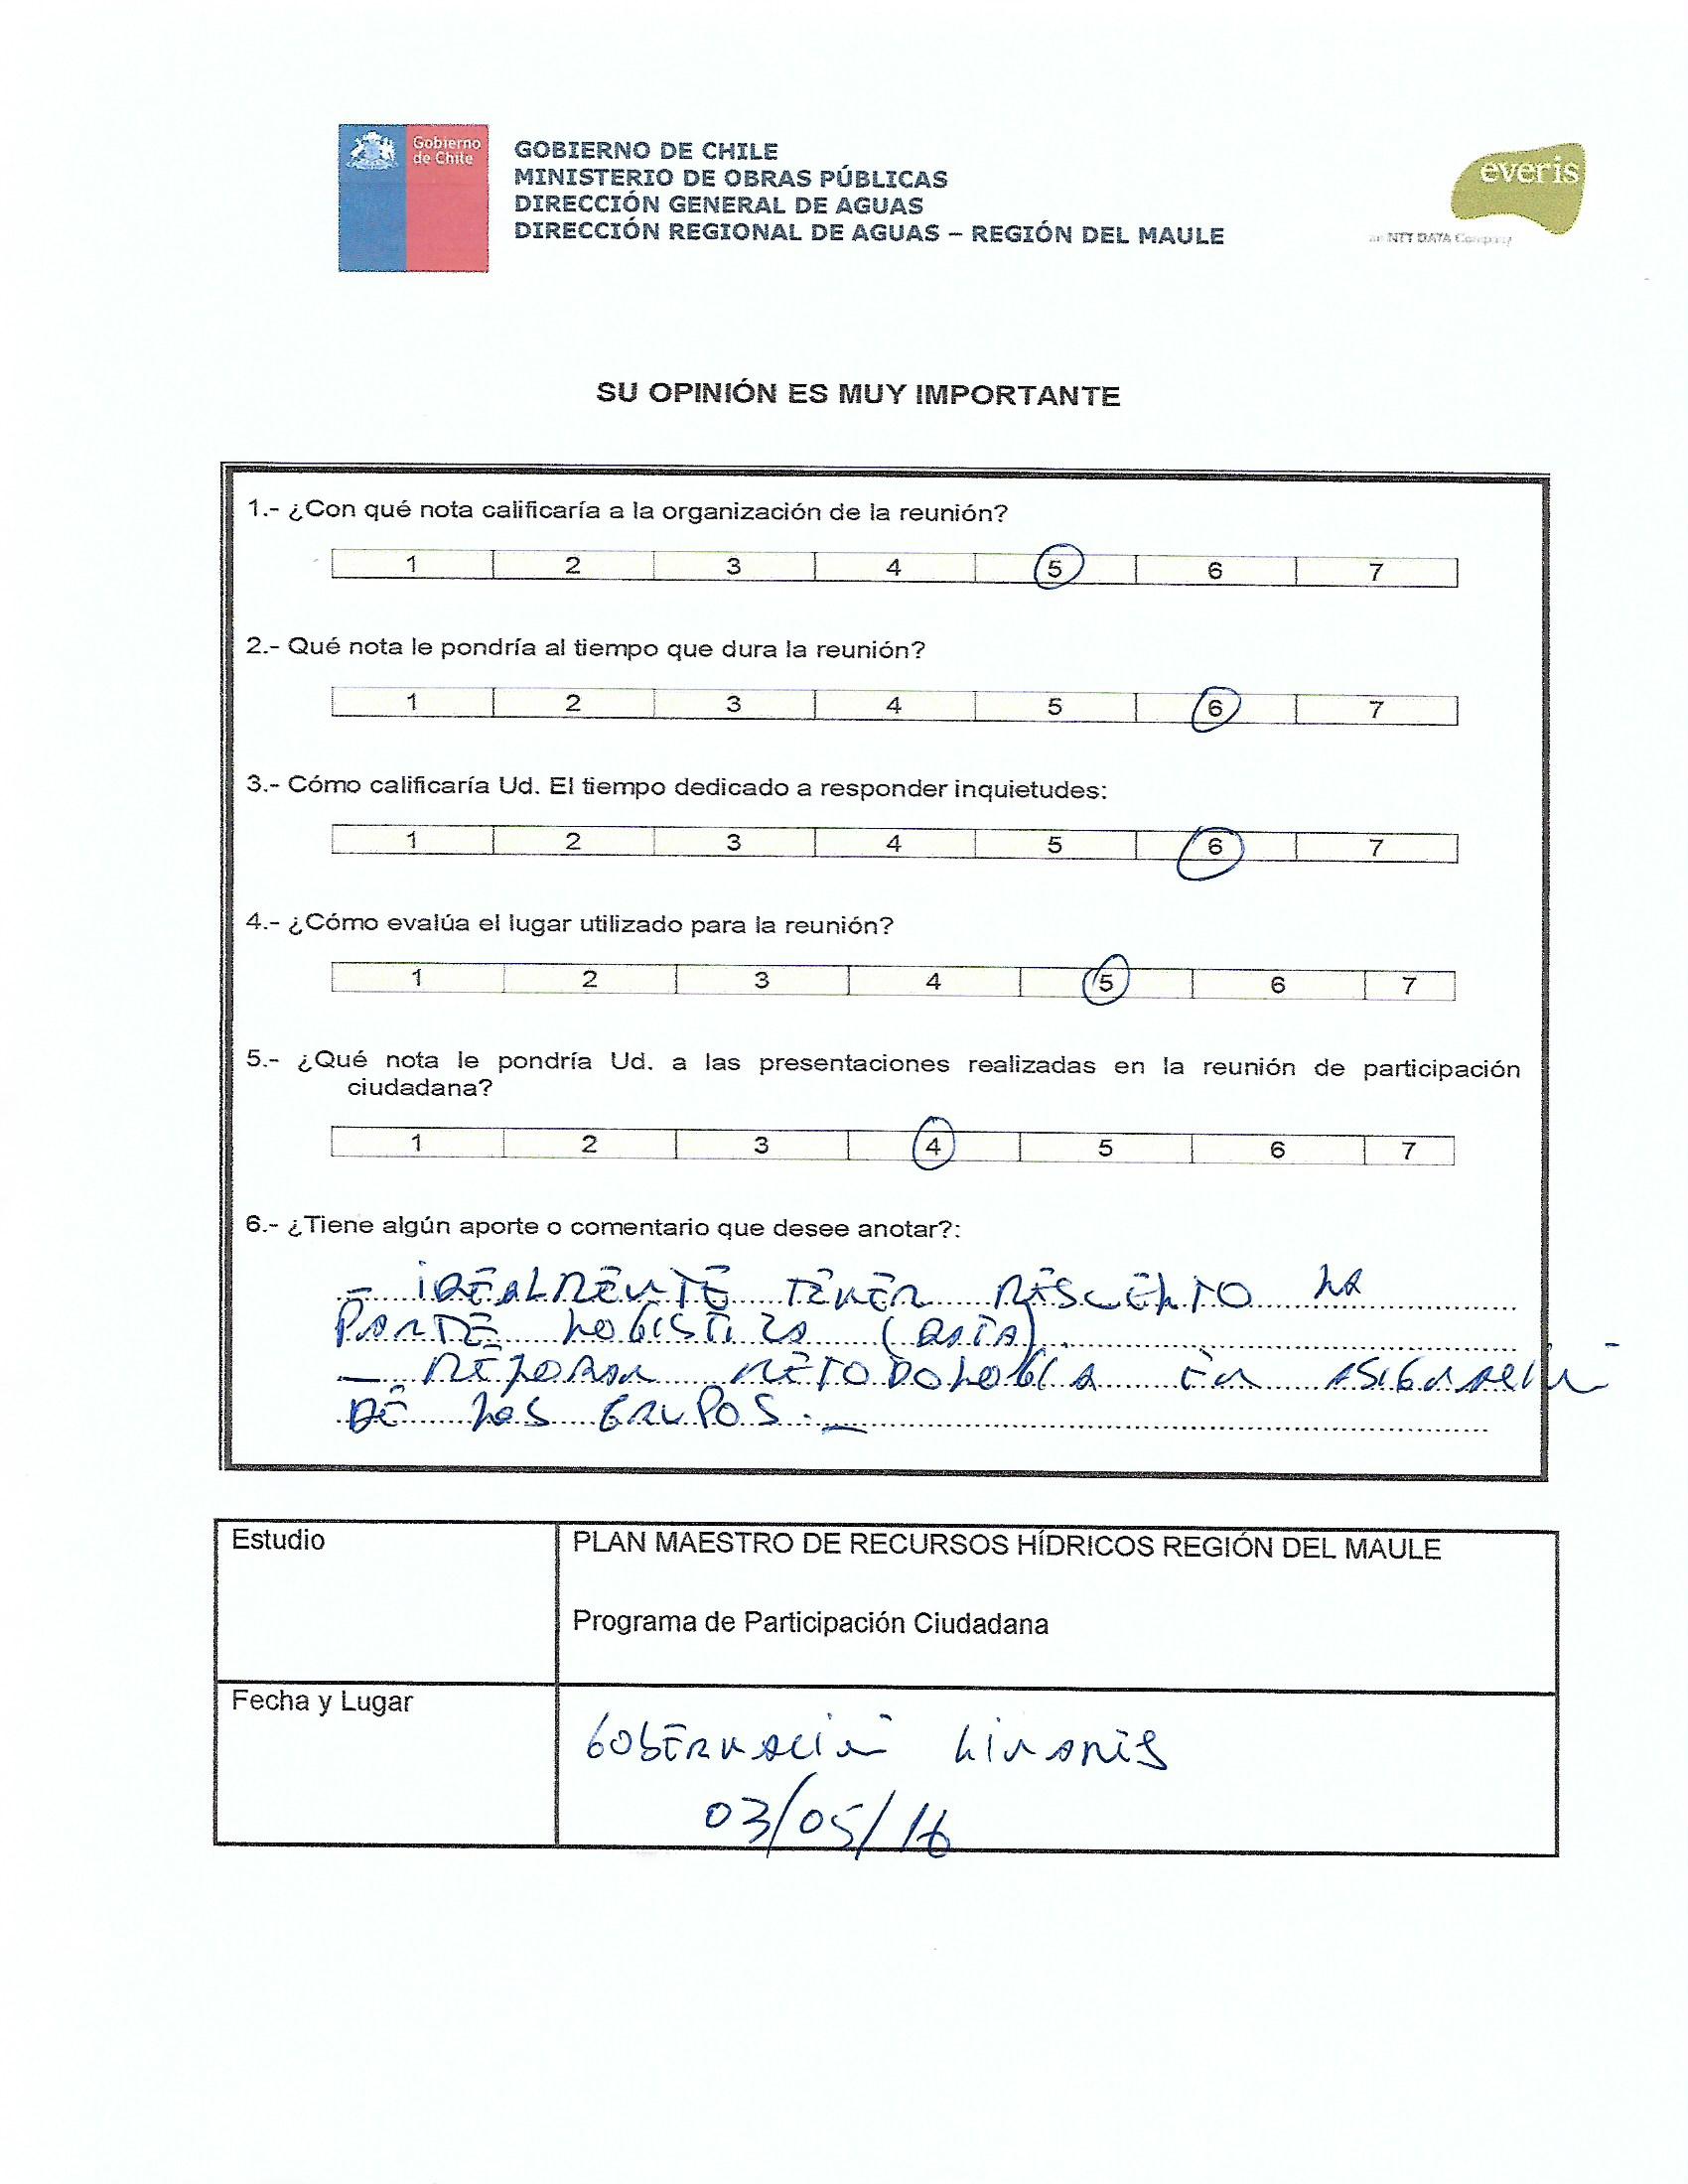 Gobierno
de Chile
GOBIERNO DE CHILE
MINISTERIO DE OBRAS PÚBLICAS
DIRECCIÓN GENERAL DE AGUAS
DIRECCIÓN REGIONAL DE AGUAS – REGIÓN DEL MAULE
everis
an NTT DATA Company
SU OPINIÓN ES MUY IMPORTANTE
1.- ¿Con qué nota calificaría a la organización de la reunión?
1 2 3 4 5 6 7
2.- Qué nota le pondría al tiempo que dura la reunión?
1 2 3 4 5 6 7
3.- Cómo calificaría Ud. El tiempo dedicado a responder inquietudes:
1 2 3 4 5 6 7
4.- ¿Cómo evalúa el lugar utilizado para la reunión?
1 2 3 4 5 6 7
5.- ¿Qué nota le pondría Ud. a las presentaciones realizadas en la reunión de participación
ciudadana?
1 2 3 4 5 6 7
6.- ¿Tiene algún aporte o comentario que desee anotar?:
- IDEALMENTE TENER RESUELTO LA
PARTE LOGISTICA (DATA).
- MEJORAR METODOLOGIA EN ASIGNACIÓN
DE LOS GRUPOS.-
Estudio
PLAN MAESTRO DE RECURSOS HÍDRICOS REGIÓN DEL MAULE
Programa de Participación Ciudadana
Fecha y Lugar
GOBERNACIÓN LINARES
03/05/16